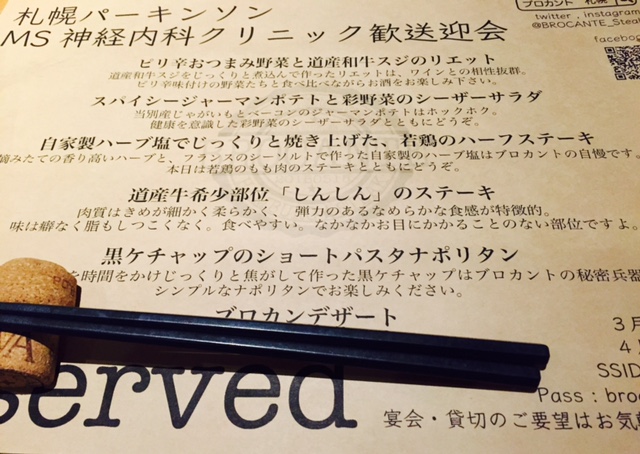 札幌パーキンソン
MS 神経内科クリニック歓送迎会
ブロカント 札幌
twitter , instagram
@BROCANTE_Ste
facebo
ピリ辛おつまみ野菜と道産和牛スジのリエット
道産和牛スジをじっくりと煮込んで作ったリエットは、ワインとの相性抜群。
ピリ辛味付けの野菜たちと食べ比べながらお酒をお楽しみ下さい。
スパイシージャーマンポテトと彩野菜のシーザーサラダ
当別産じゃがいもとベーコンのジャーマンポテトはホックホク。
健康を意識した彩野菜のシーザーサラダとともにどうぞ。
自家製ハーブ塩でじっくりと焼き上げた、若鶏のハーフステーキ
摘みたての香り高いハーブと、フランスのシーソルトで作った自家製のハーブ塩はブロカントの自慢です。
本日は若鶏のもも肉のステーキとともにどうぞ。
道産牛希少部位「しんしん」のステーキ
肉質はきめが細かく柔らかく、弾力のあるなめらかな食感が特徴的。
味は癖なく脂もしつこくなく。食べやすい。なかなかお目にかかることのない部位ですよ。
黒ケチャップのショートパスタナポリタン
を時間をかけじっくりと焦がして作った黒ケチャップはブロカントの秘密兵器
シンプルなナポリタンでお楽しみください。
ブロカンデザート
3月
4
SSID
Pass : broc
served
宴会・貸切のご要望はお気軽